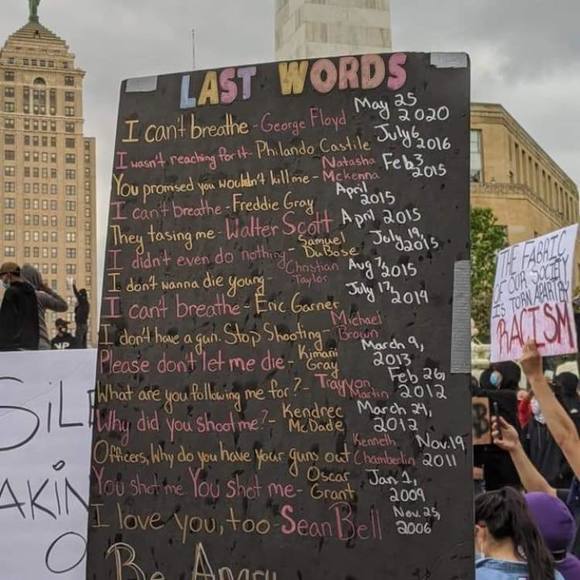 LAST WORDS
I can't breathe - George Floyd May 25 2020
I wasn't reaching for it - Philando Castile July 6 2016
You promised you wouldn't kill me - Natasha Mckenna Feb 3 2015
I can't breathe - Freddie Gray April 2015
They tasing me - Walter Scott April 2015
I didn't even do nothing - Samuel DuBose July 19, 2015
I don't wanna die young - Christian Taylor Aug 7, 2015
I can't breathe - Eric Garner July 17, 2014
I don't have a gun. Stop Shooting - Michael Brown
Please don't let me die - Kimani Gray March 9, 2013
What are you following me for? - Trayvon Martin Feb 26, 2012
Why did you shoot me? - Kendrec McDade March 24, 2012
Officers, Why do you have your guns out Kenneth Chamberlin Nov. 19 2011
You shot me You shot me - Oscar Grant Jan 1, 2009
I love you, too - Sean Bell Nov. 25, 2006
Be Angry
THE FABRIC
OF OUR SOCIETY
IS TORN APART BY
RACISM
SIL
AKIN
O